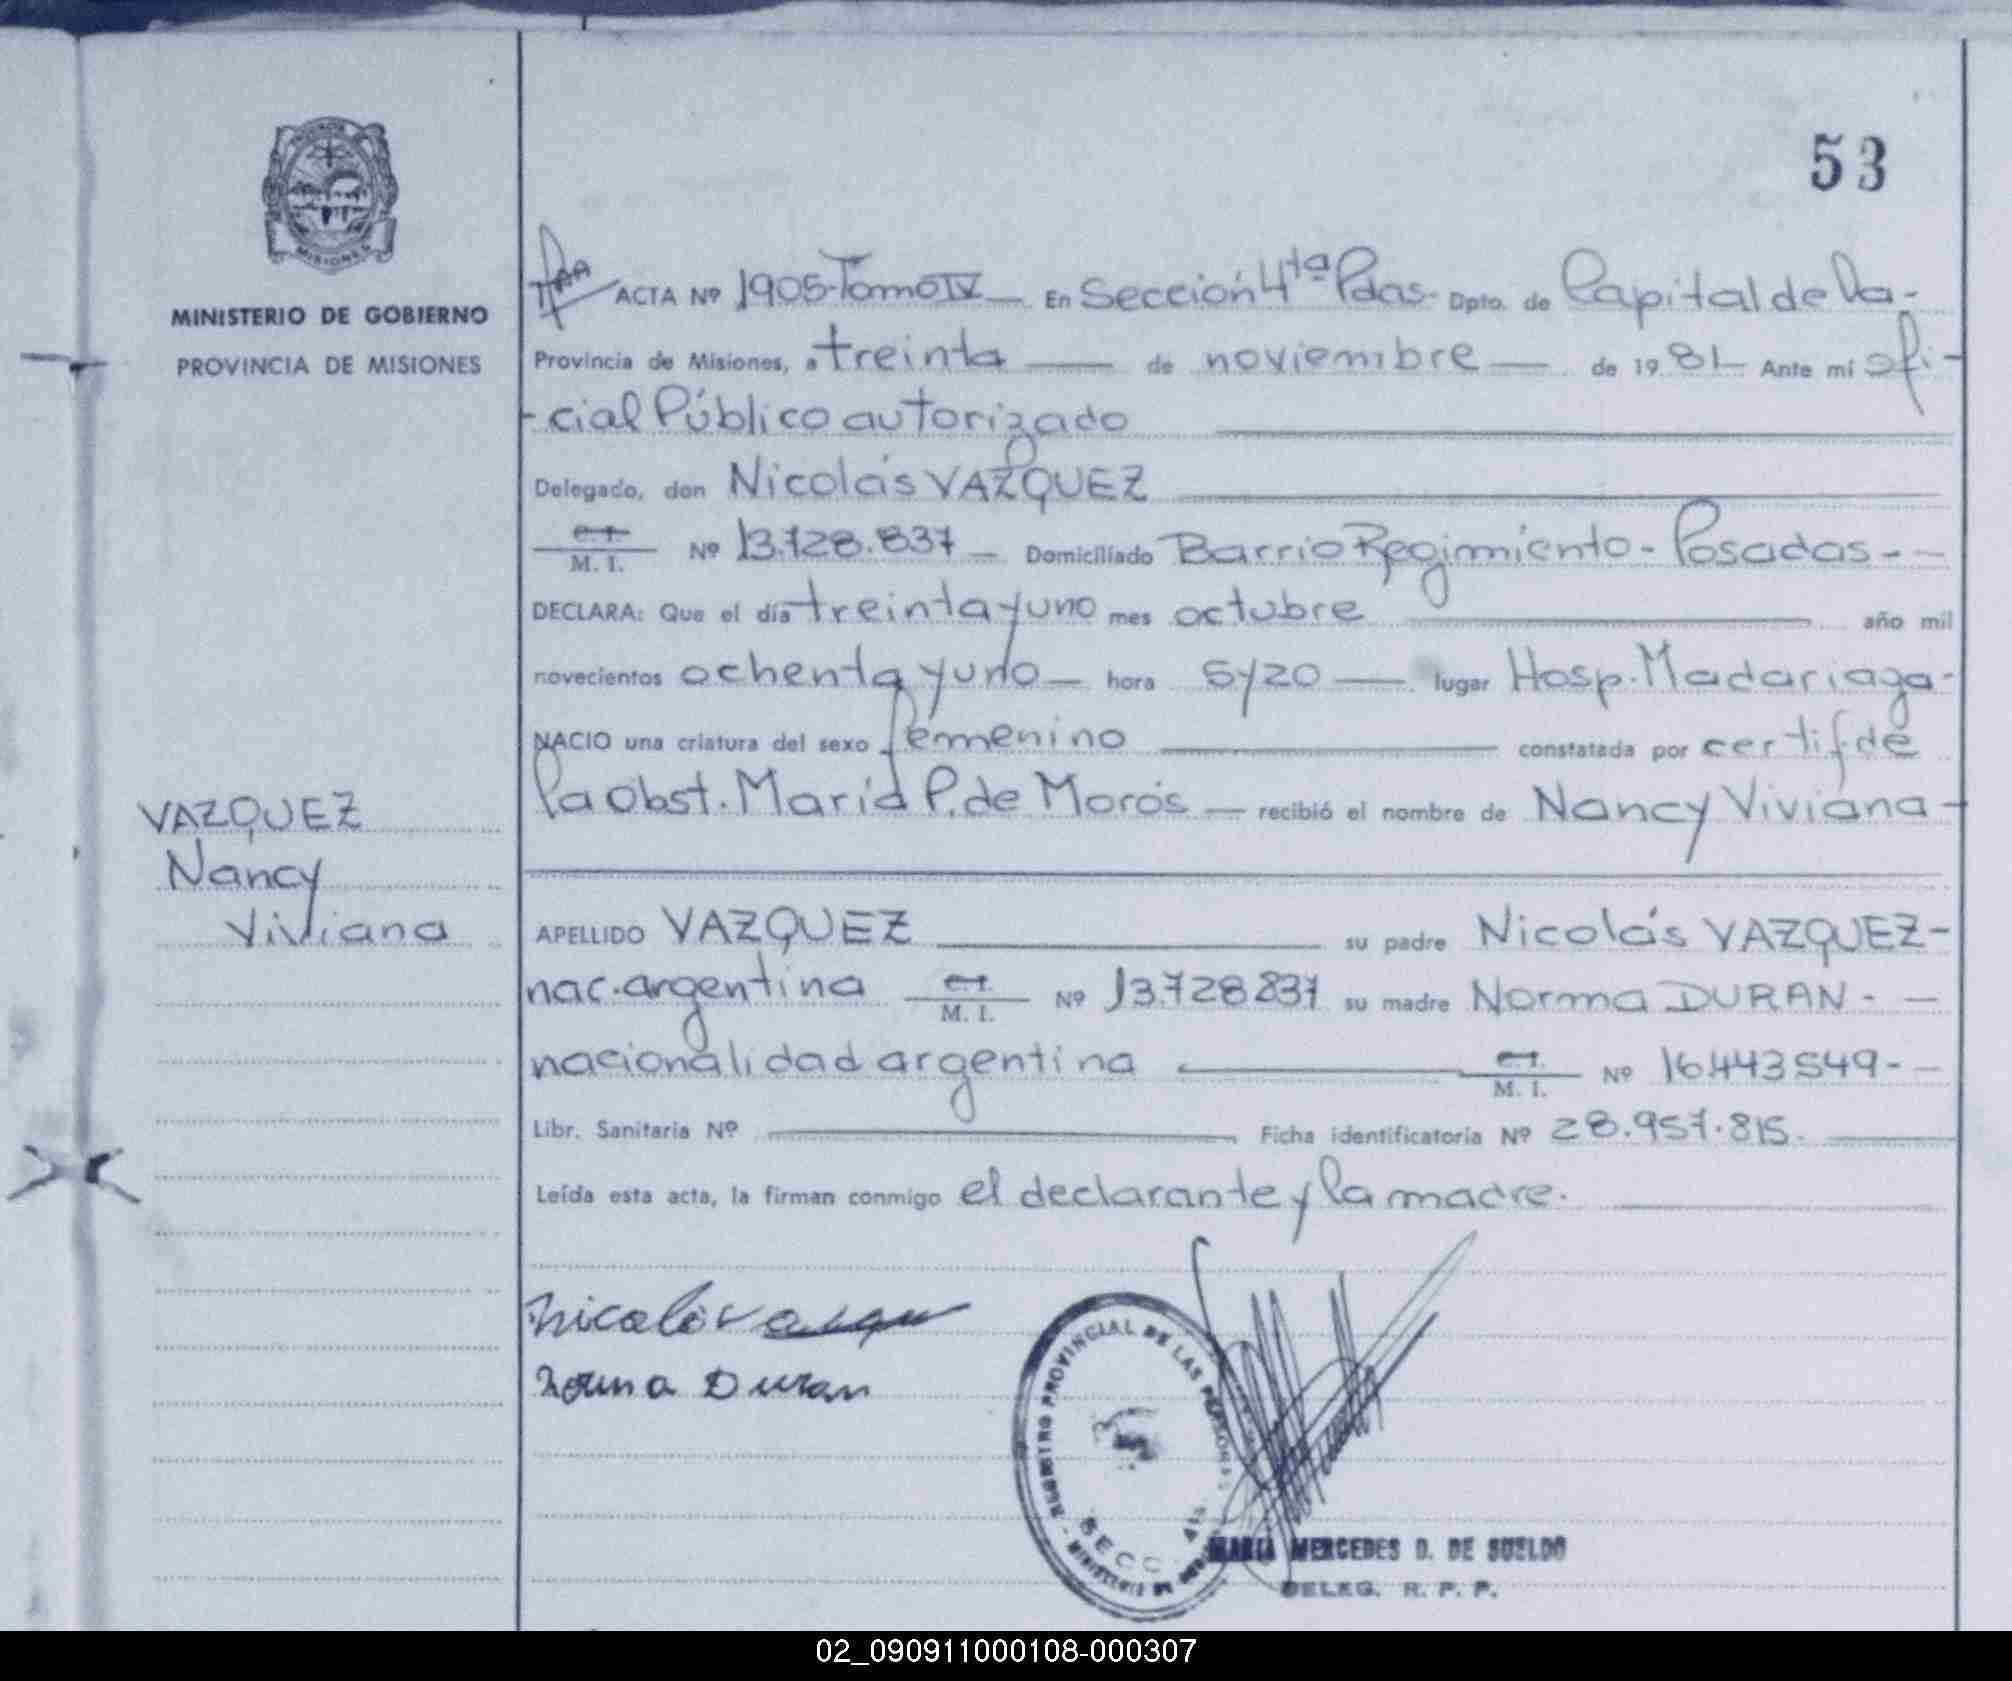 53
ACTA Nº 1905-Tomo IV — En Sección 4ta Pdas. Dpto. de Capital de la-
MINISTERIO DE GOBIERNO
PROVINCIA DE MISIONES
Provincia de Misiones, a treinta — de noviembre — de 19 81 — Ante mí ofi-
-cial Público autorizado
Delegado, don Nicolás VAZQUEZ
C.I.
M. I. Nº 13.728.837 — Domiciliado Barrio Regimiento - Posadas - -
DECLARA: Que el día treinta y uno mes octubre — año mil
novecientos ochenta y uno — hora 5 y 20 — lugar Hosp. Madariaga-
NACIO una criatura del sexo femenino — constatada por certif. de
la Obst. María P. de Morós — recibió el nombre de Nancy Viviana -
VAZQUEZ
Nancy
Viviana
APELLIDO VAZQUEZ — su padre Nicolás VAZQUEZ-
nac. argentina C.I. M. I. Nº 13.728837 su madre Norma DURAN - -
nacionalidad argentina — C.I. M. I. Nº 16.443549- -
Libr. Sanitaria Nº — Ficha identificatoria Nº 28.957.815. —
Leída esta acta, la firman conmigo el declarante y la madre. —
Norma Duran
REGISTRO PROVINCIAL DE LAS PERSONAS
SECC. 4ta
MARIA MERCEDES D. DE SUELDO
DELEG. R. P. P.
MISIONES
02_090911000108-000307